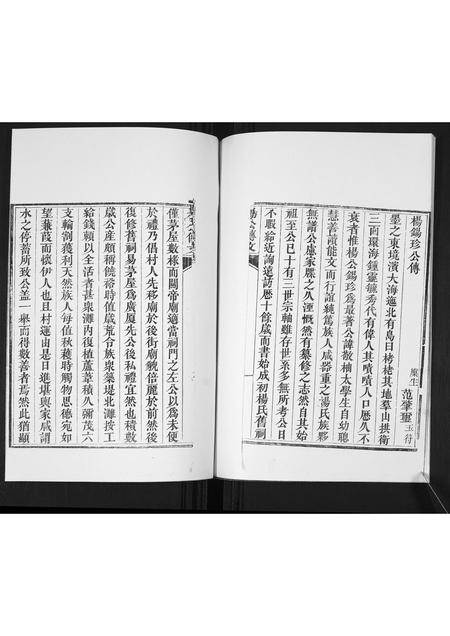 楊錫珍公傳
廩生 范肇璽 玉符
墨之東境濱大海迤北有島曰栲栳其地羣山拱衛
三面環海鍾靈毓秀代有偉人其嘖嘖人口歷久不
衰者惟楊公錫珍為最著公諱散柚太學生自幼聰
慧善讀能文而行誼純篤族人咸器重之湯氏族夥
無譜公慮家牒之久湮慨然有纂修之志然自其始
祖至公已十有三世宗軸雖存世系多無所考公日
不暇給近詢遠訪歷十餘歲而書始成初楊氏舊祠
僅茅屋數椽而關帝廟適當祠門之左公以為未便
於禮乃倡村人先移廟於後街廟貌倍麗於前然後
復修舊祠易茅屋為廣廈先公後私禮宜然也積數
歲公產頗稱饒裕時值歲荒令族衆築堤北灘按工
給錢賴以全活者甚衆灘內復植蘆葦積久彌茂六
支輪割獲利天然族人每值秋穫時觸物思德宛如
望蒹葭而懷伊人也且村運由是日進堪輿家咸謂
水之停蓄所致公蓋一舉而得數善者焉然此猶顯